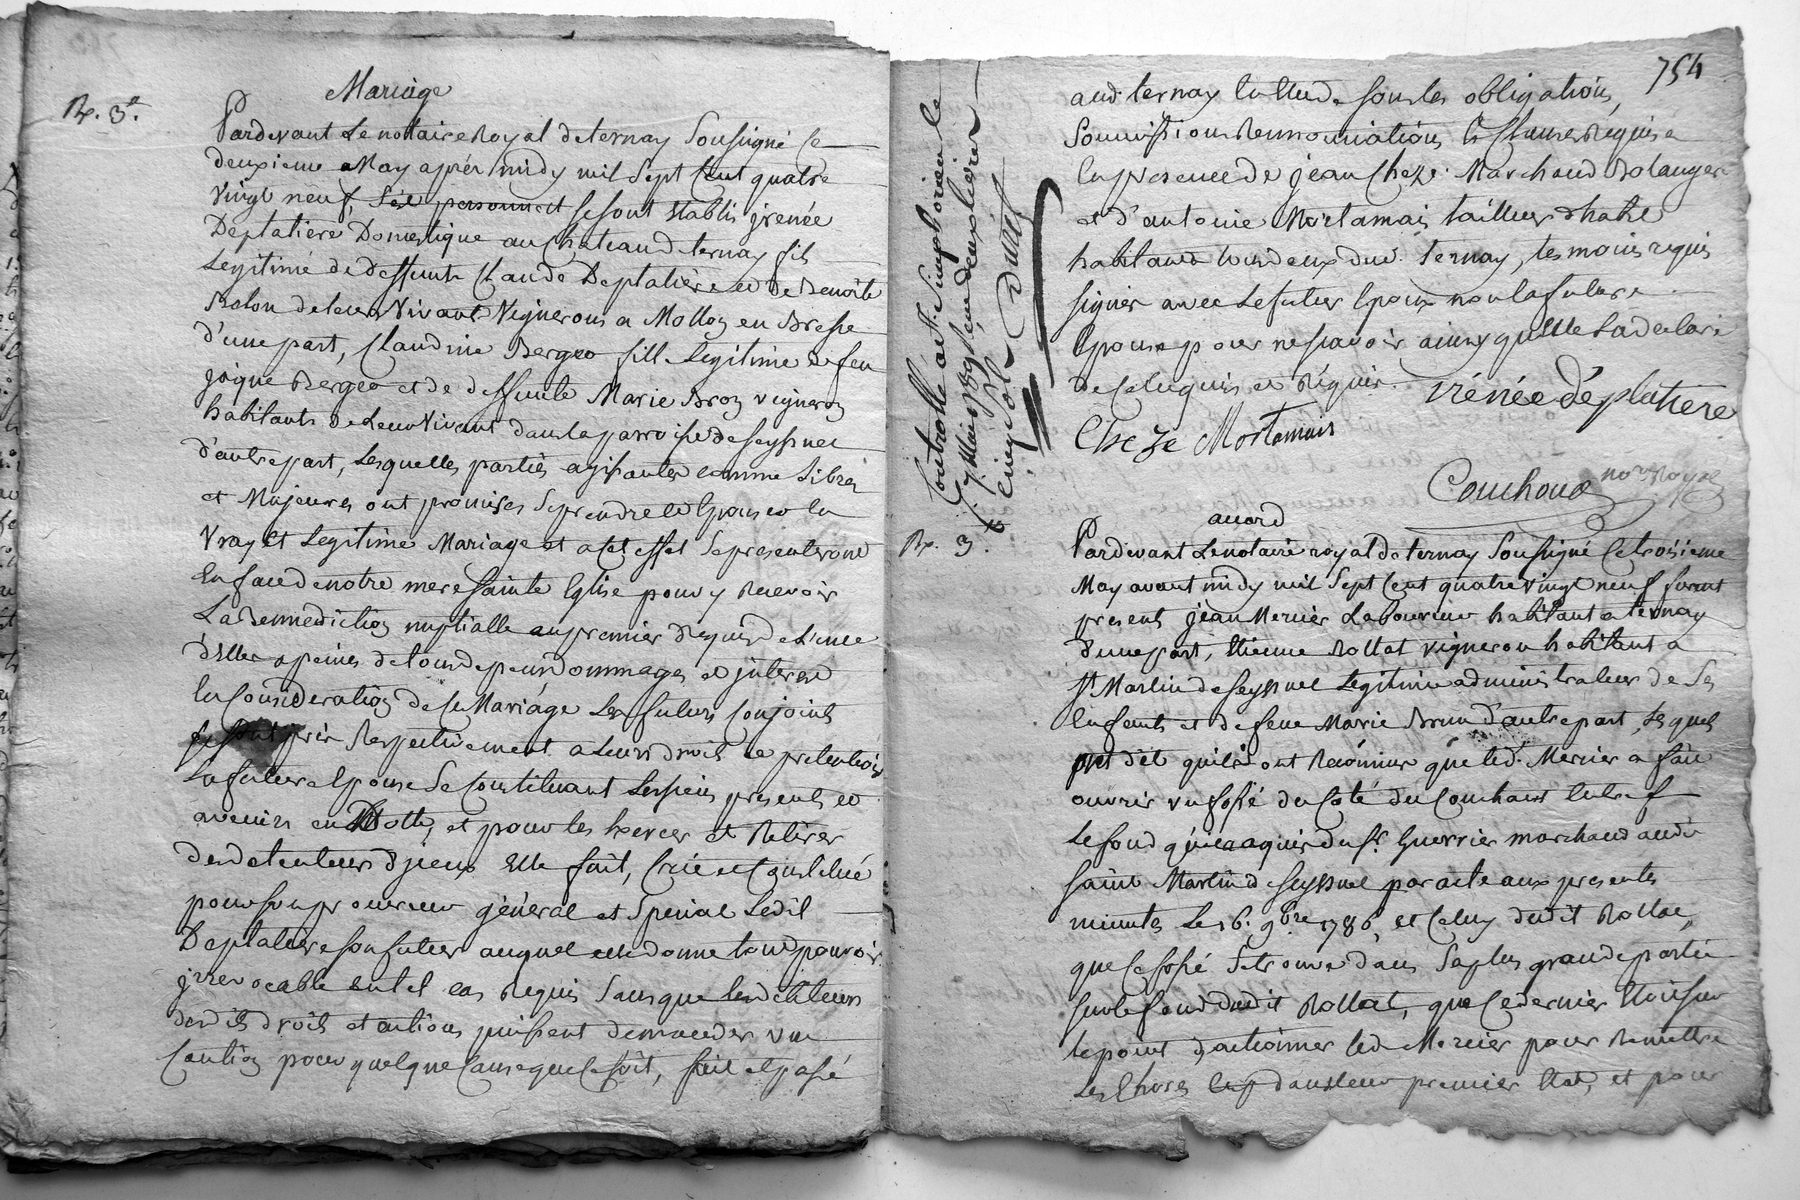 Mariage
Rx. 3.#
Pardevant Le notaire Royal de ternay Soussigné Ce
deuxieme May aprés midy mil Sept Cent quatre
vingt neuf se sont Etablis jrenée
Déplatière Domestique au Chateau d ternay fils
Legitime de deffunts Claude Deplatière et de Benoite
de leur Vivant Vignerons a Mollon en Bresse
d'une part, Claudine Berger fille Legitime de feu
jâque Berger et de deffunte Marie Bron vigneron
habitants de Leur Vivant dans la parroisse de Seyssuel
d'autre part, Lesquelles parties agissantes comme Libres
et Majeures ont promises Se prendre et Epouser en
Vray et Legitime Mariage et a Cet effet Se presenteront
En face de notre mere Sainte Eglise pour y Recevoir
La Bennediction nuptialle au premier Requis de L'une
d'Elles a peines de tous depens dommages et jnterets
En Consideration de Ce Mariage Les futurs Conjoints
Respectivement a Leurs droits et pretentions
La future Epouse Se Constituant Les siens presents et
avenirs en Dotte, et pour les Exercer et Retirer
des detenteurs d'jceux Elle fait, Crée et Constitué
pour son procureur général et Spécial Ledit
Deplatière son futur auquel elle donne tout pouvoir
jrrevocable en tel cas Requis Sans que Les debiteurs
desdits droits et actions puissent demander une
Caution pour quelque Cause que Ce soit, fait et passé
754
aud. ternay Etude sous les obligations,
Soumissions Rennonciations et Clause Requise
En presence de jean Cheze Marchand Bolanger
et d'antoine Mortamais tailleur d'habit
habitants tous deux dud. ternay, temoins requis
signés avec Le futur Epoux non la future
Epouse pour ne sçavoir ainsy quelle La declaré
de Ce Enquis et Requis. irénée déplatiere
Cheze Mortamais
Couchoud no.re Royal
Controllé a St. Simphorien le
7 May 1789
accord
Rx. 3.#
Pardevant Le notaire royal de ternay Soussigné Ce troisieme
May avant midy mil Sept Cent quatre vingt neuf furent
presents jean Mercier Laboureur habitant a ternay
d'une part, Etienne Rollat vigneron habitant a
St. Martin de Seyssuel Legitime administrateur de Ses
Enfents et de feue Marie Brun d'autre part, Lesquels
ont dit quils ont Reconnus que led. Mercier a fait
ouvrir un fossé du Coté du Couchant Entre
Le fond qu'il a aquis du Sr. Guerrier marchand aud.
Saint Martin d Seyssuel par acte aux presentes
minutes Le 16. 9bre 1786, et Celuy dudit Rollat,
que Ce fossé Se trouve dans Sa plus grande partie
sur le fond dudit Rollat, que Ce dernier Etoit sur
le point d'actionner led. Mercier pour Remettre
Les Choses dans leur premier Etat, et pour